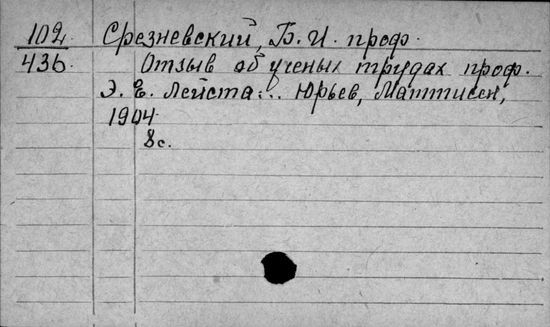 102 Срезневский, Б. И. проф.
436 Отзыв об ученых трудах проф.
Э. Е. Лейста... Юрьев, Маттисен,
1904
8с.